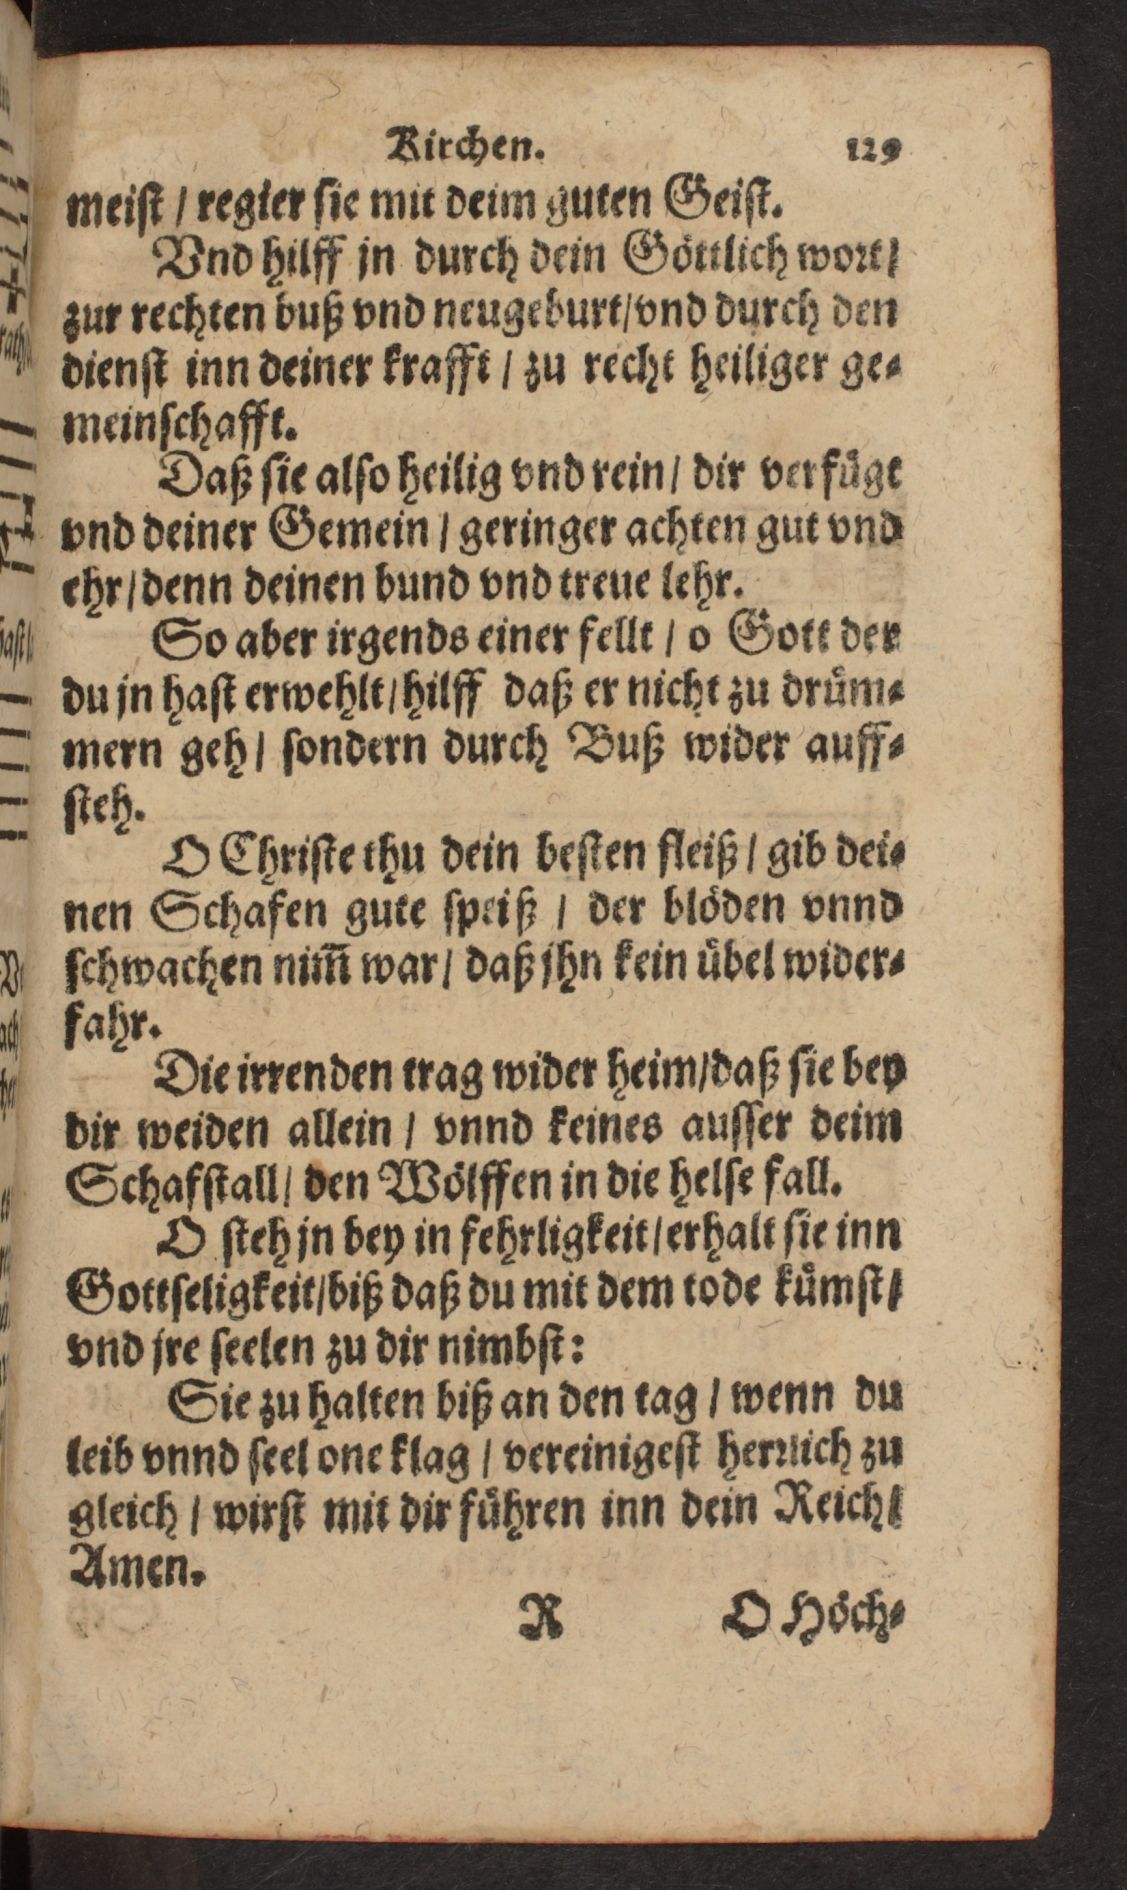 Kirchen. 129
meist / regier sie mit deim guten Geist.
Vnd hilff jn durch dein Göttlich wort /
zur rechten buß vnd neugeburt / vnd durch den
dienst inn deiner krafft / zu recht heiliger ge-
meinschafft.
Daß sie also heilig vnd rein / dir verfügt
vnd deiner Gemein / geringer achten gut vnd
ehr / denn deinen bund vnd treue lehr.
So aber irgends einer fellt / o Gott der
du jn hast erwehlt / hilff daß er nicht zu drüm-
mern geh / sondern durch Buß wider auff-
steh.
O Christe thu dein besten fleiß / gib dei-
nen Schafen gute speiß / der blöden vnnd
schwachen nim̄ war / daß jhn kein übel wider-
fahr.
Die irrenden trag wider heim / daß sie bey
dir weiden allein / vnnd keines ausser deim
Schafstall / den Wölffen in die helse fall.
O steh jn bey in fehrligkeit / erhalt sie inn
Gottseligkeit / biß daß du mit dem tode kümst /
vnd jre seelen zu dir nimbst:
Sie zu halten biß an den tag / wenn du
leib vnnd seel one klag / vereinigest herrlich zu
gleich / wirst mit dir führen inn dein Reich /
Amen.
R O Höch-